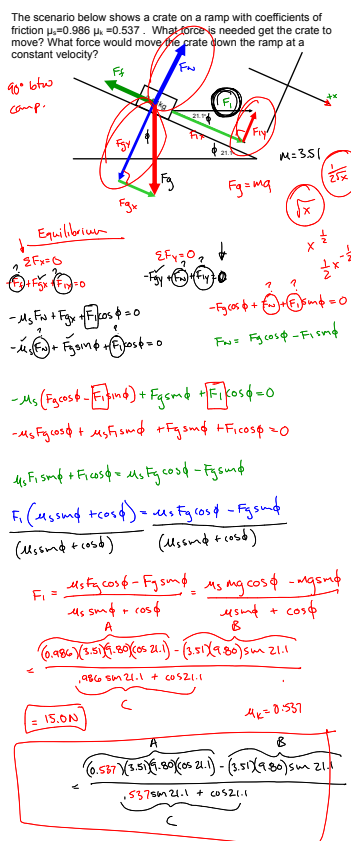 The scenario below shows a crate on a ramp with coefficients of
friction μₛ=0.986 μₖ =0.537 . What force is needed get the crate to
move? What force would move the crate down the ramp at a
constant velocity?
90° btw
comp.
Fs
FN
kg
F₁
+x
21.1°
ϕ
F₁x
F₁y
Fgy
ϕ
21.1°
m=3.51
Fg
Fg=mg
Fgx
1/2√x
√x
x^1/2
1/2 x^-1/2
Equilibrium
ΣFx=0
ΣFy=0
-Fs+Fgx+F₁x=0
-Fgy+FN+F₁y=0
-Fgcosϕ + FN + F₁sinϕ = 0
-μsFN+Fgx+F₁cosϕ=0
-μsFN + Fgsinϕ + F₁cosϕ=0
FN= Fgcosϕ-F₁sinϕ
-μs(Fgcosϕ-F₁sinϕ)+Fgsinϕ+F₁cosϕ=0
-μsFgcosϕ + μsF₁sinϕ +Fgsinϕ +F₁cosϕ =0
μsF₁sinϕ+F₁cosϕ= μsFgcosϕ-Fgsinϕ
F₁(μssinϕ+cosϕ) = μsFgcosϕ - Fgsinϕ
(μssinϕ+cosϕ) (μssinϕ+cosϕ)
F₁ = μsFgcosϕ-Fgsinϕ = μsmgcosϕ -mgsinϕ
μssinϕ + cosϕ μssinϕ + cosϕ
A B
= (0.986)(3.51)(9.80)(cos21.1) - (3.51)(9.80)sin 21.1
.986 sin21.1 + cos21.1
C
= 15.0N
μk=0.537
A B
= (0.537)(3.51)(9.80)(cos21.1) - (3.51)(9.80)sin 21.1
.537sin21.1 + cos21.1
C